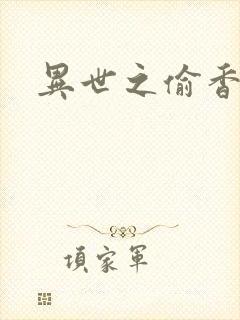 異世之偷香
項家軍